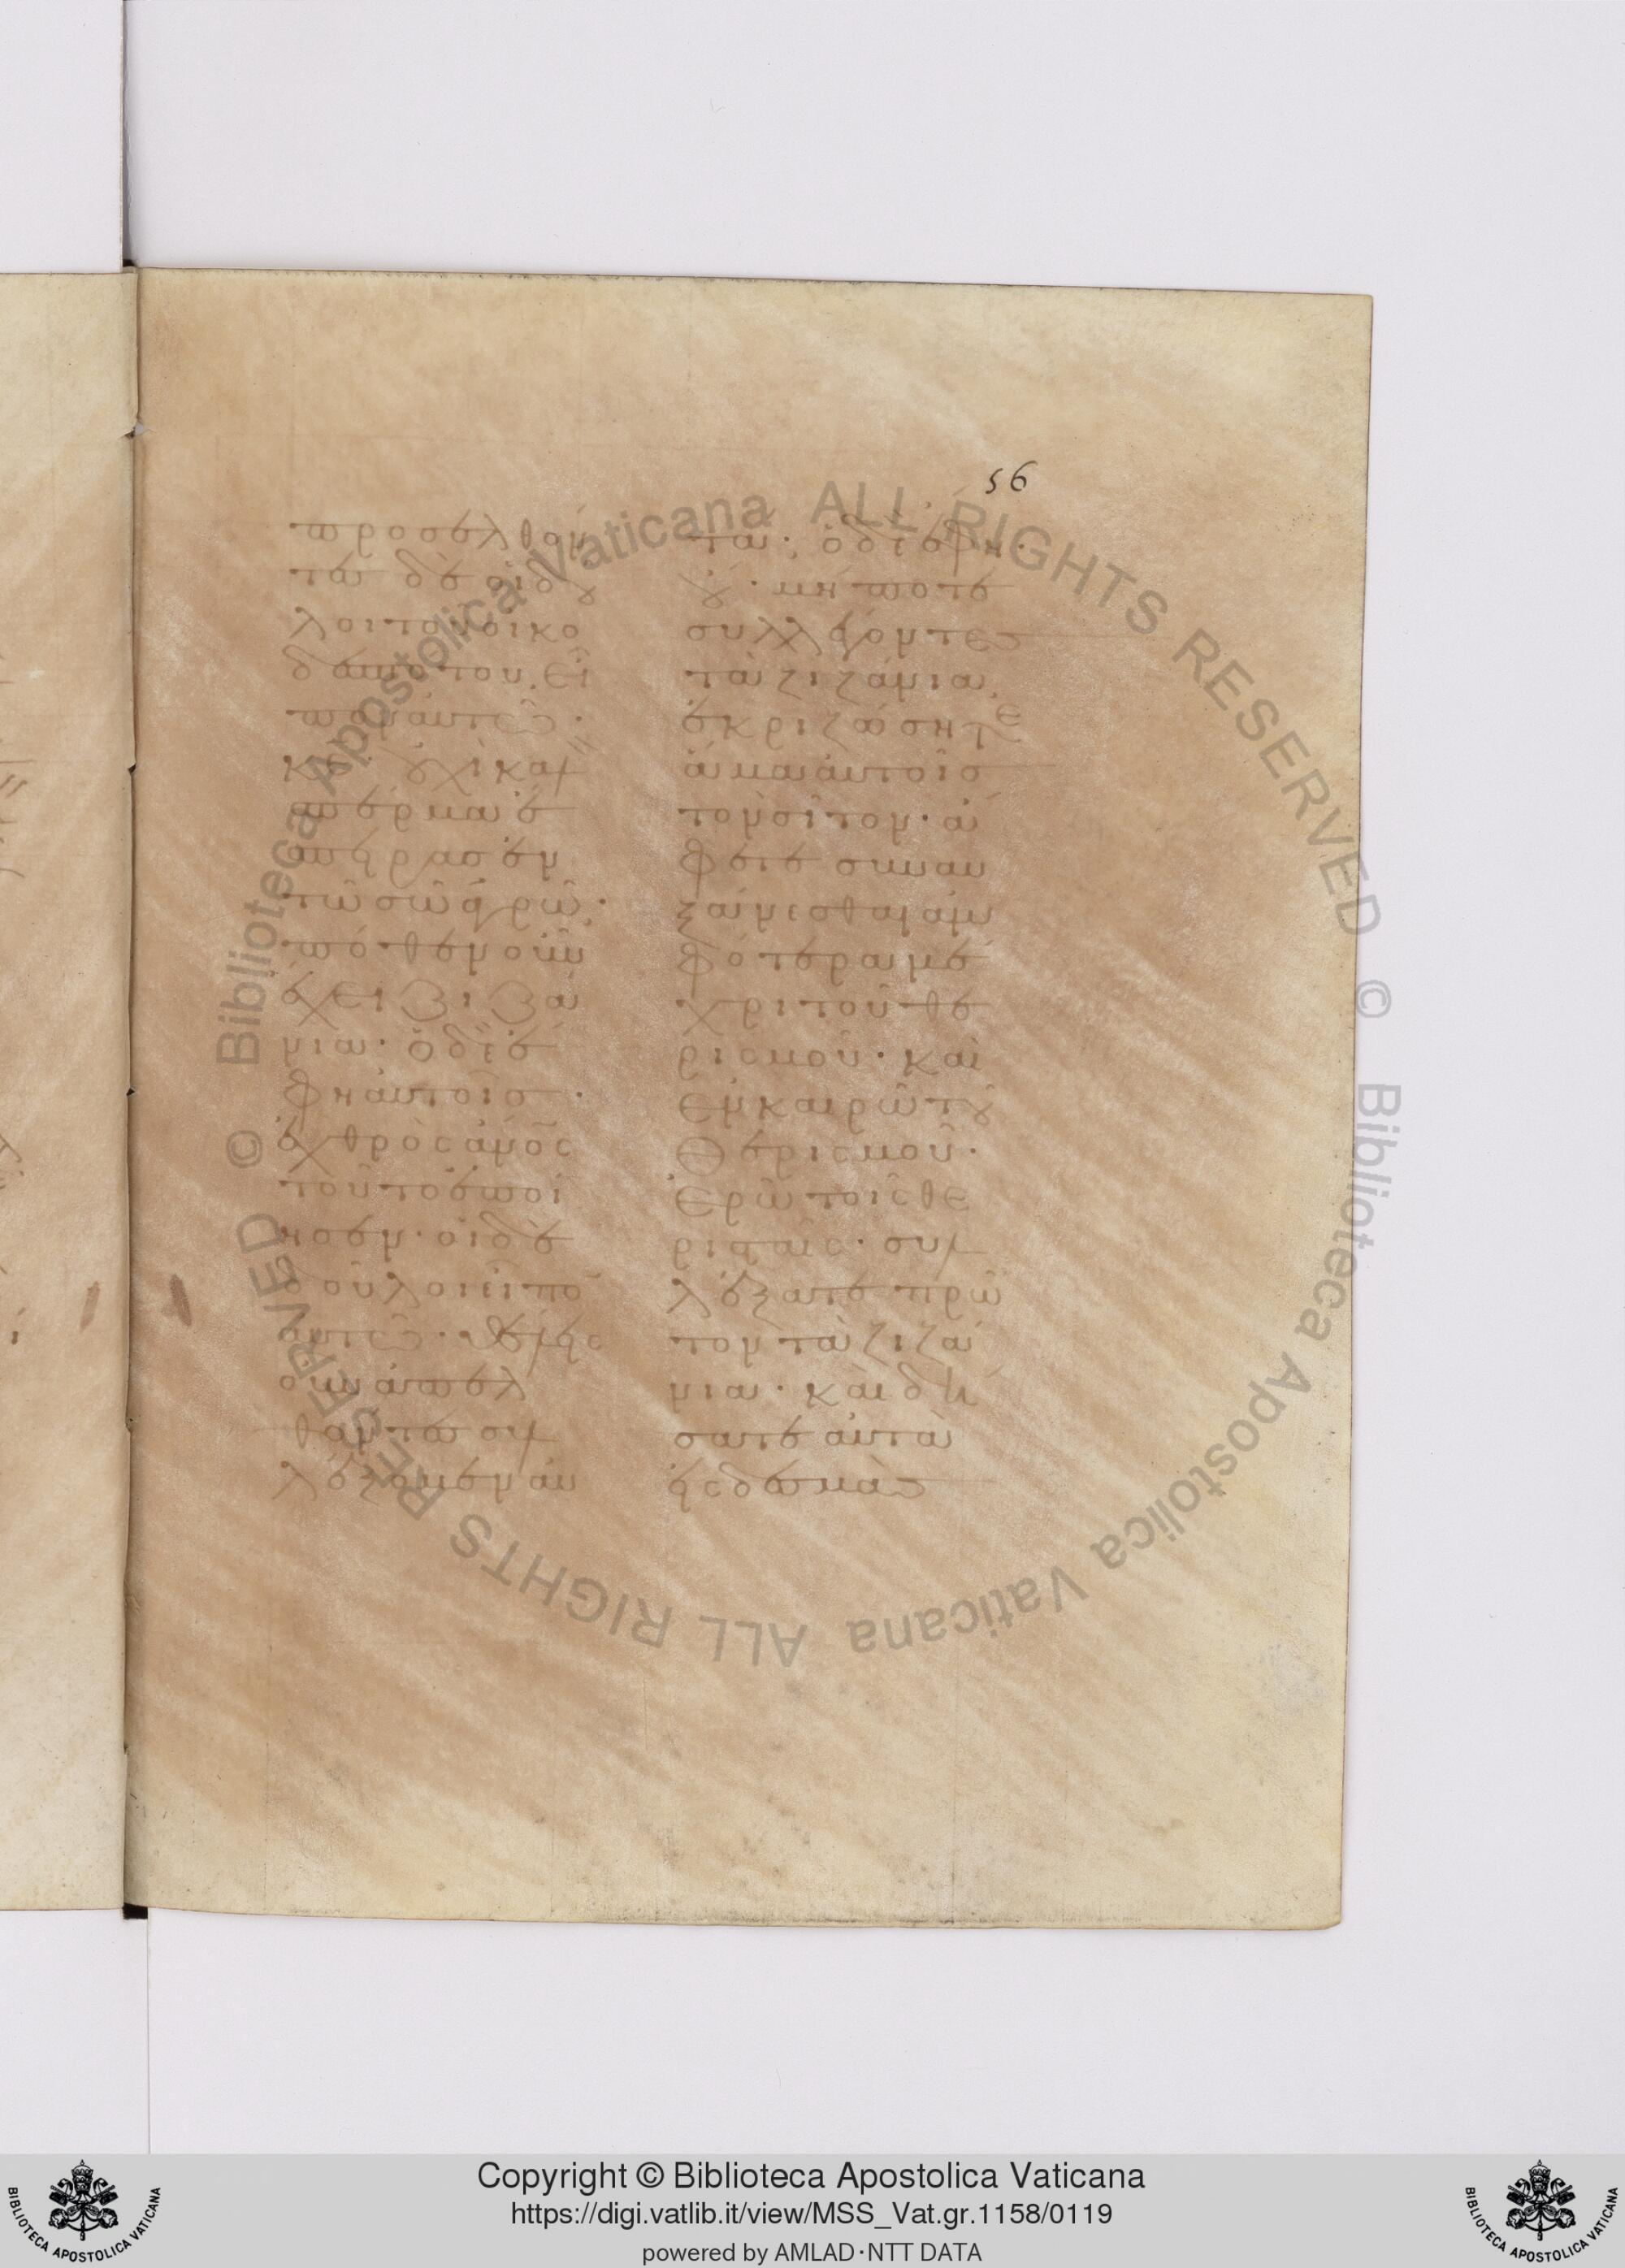 56
προσελθόν
τες δὲ οἱ δοῦ
λοι τοῦ οἰκο
δεσπότου εἶ
πον αὐτῶ·
κε οὐχὶ καλ
σπέρμα ἔ
σπειρας ἐν
τῶ σῶ ἀγρῶ·
πόθεν οὖν
ἔχει ζιζά
νια· ὁ δὲ ἔ
φη αὐτοῖς·
ἐχθρὸς ἀνος
τοῦτο ἐποί
ησεν· οἱ δὲ
δοῦλοι εἶπον
αὐτῶ· θέλεις
οὖν ἀπελ
θόντες συλ
λέξομεν αὐ
τά· ὁ δὲ ἔφη·
οὔ· μήποτε
συλλέγοντες
τὰ ζιζάνια
ἐκριζώσητε
ἅμα αὐτοῖς
τὸν σῖτον· ἄ
φετε συναυ
ξάνεσθαι ἀμ
φότερα μέ
χρι τοῦ θε
ρισμοῦ· καὶ
ἐν καιρῶ τοῦ
θερισμοῦ·
ἐρῶ τοῖς θε
ρισταῖς· συλ
λέξατε πρῶ
τον τὰ ζιζά
νια· καὶ δή
σατε αὐτὰ
εἰς δεσμὰς
Copyright © Biblioteca Apostolica Vaticana
https://digi.vatlib.it/view/MSS_Vat.gr.1158/0119
powered by AMLAD·NTT DATA
BIBLIOTECA APOSTOLICA VATICANA
BIBLIOTECA APOSTOLICA VATICANA
© Biblioteca Apostolica Vaticana ALL RIGHTS RESERVED
© Biblioteca Apostolica Vaticana ALL RIGHTS RESERVED